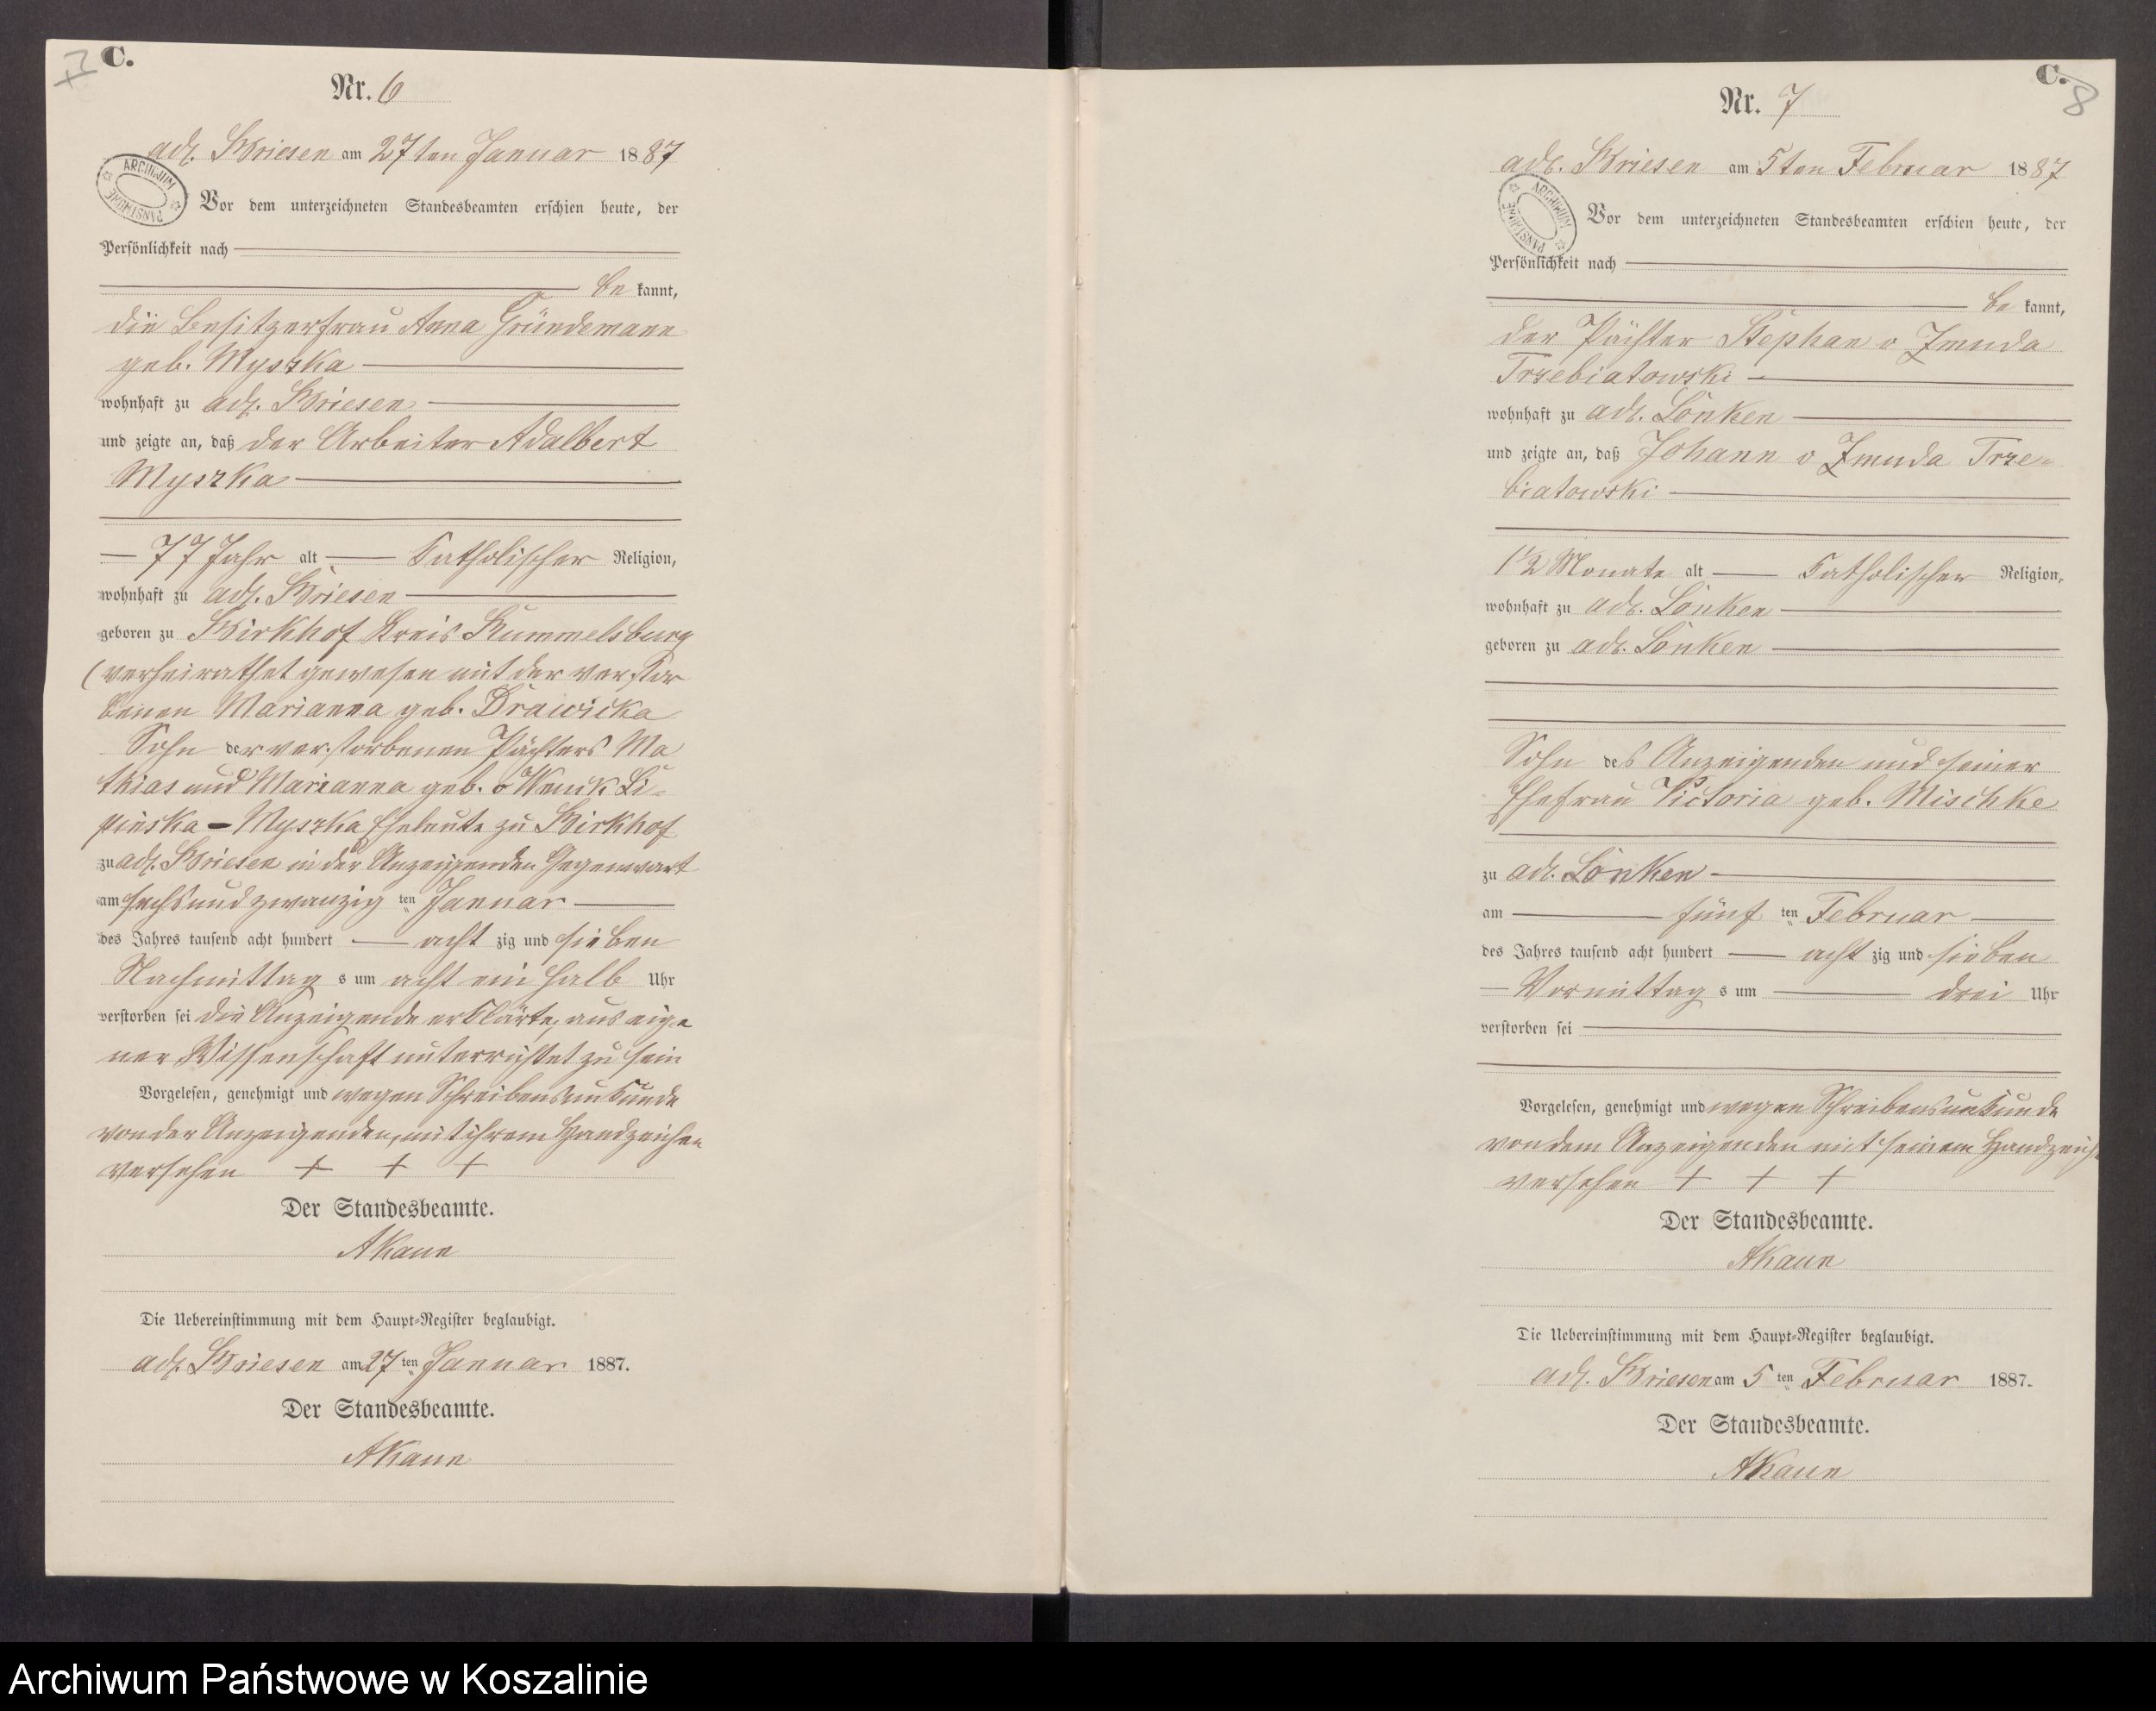 C.
7
Nr. 6
adl. Briesen am 27ten Januar 1887
ARCHIWUM PAŃSTWOWE
Vor dem unterzeichneten Standesbeamten erschien heute, der
Persönlichkeit nach
be kannt,
die Besitzerfrau Anna Gründemann
geb. Myszka
wohnhaft zu adl. Briesen
und zeigte an, daß der Arbeiter Adalbert
Myszka
77 Jahr alt Katholischer Religion,
wohnhaft zu adl. Briesen
geboren zu Birkhof Kreis Rummelsburg
(verheirathet gewesen mit der verstor
benen Marianna geb. Drawicka
Sohn der verstorbenen Pächters Ma
thias und Marianna geb. v Wnuk Li-
pinska - Myszka Eheleute zu Birkhof
zu adl. Briesen in der Anzeigenden Gegenwart
am sechsundzwanzig ten Januar
des Jahres tausend acht hundert acht zig und sieben
Nachmittag s um acht ein halb Uhr
verstorben sei die Anzeigende erklärte, aus eige
ner Wissenschaft unterrichtet zu sein
Vorgelesen, genehmigt und wegen Schreibensunkunde
von der Anzeigenden, mit ihrem Handzeichen
versehen + + +
Der Standesbeamte.
AKaun
Die Uebereinstimmung mit dem Haupt-Register beglaubigt.
adl. Briesen am 27 ten Januar 1887.
Der Standesbeamte.
AKaun
C.
8
Nr. 7
adl. Briesen am 5ten Februar 1887
ARCHIWUM PAŃSTWOWE
Vor dem unterzeichneten Standesbeamten erschien heute, der
Persönlichkeit nach
be kannt,
der Pächter Stephan v Zmuda
Trzebiatowski
wohnhaft zu adl. Lonken
und zeigte an, daß Johann v Zmuda Trze-
biatowski
1 1/2 Monate alt Katholischer Religion,
wohnhaft zu adl. Lonken
geboren zu adl. Lonken
Sohn des Anzeigenden und seiner
Ehefrau Victoria geb. Mischke
zu adl. Lonken
am fünf ten Februar
des Jahres tausend acht hundert acht zig und sieben
Vormittag s um drei Uhr
verstorben sei
Vorgelesen, genehmigt und wegen Schreibensunkunde
von dem Anzeigenden mit seinem Handzeich
versehen + + +
Der Standesbeamte.
AKaun
Die Uebereinstimmung mit dem Haupt-Register beglaubigt.
adl. Briesen am 5 ten Februar 1887.
Der Standesbeamte.
AKaun
Archiwum Państwowe w Koszalinie